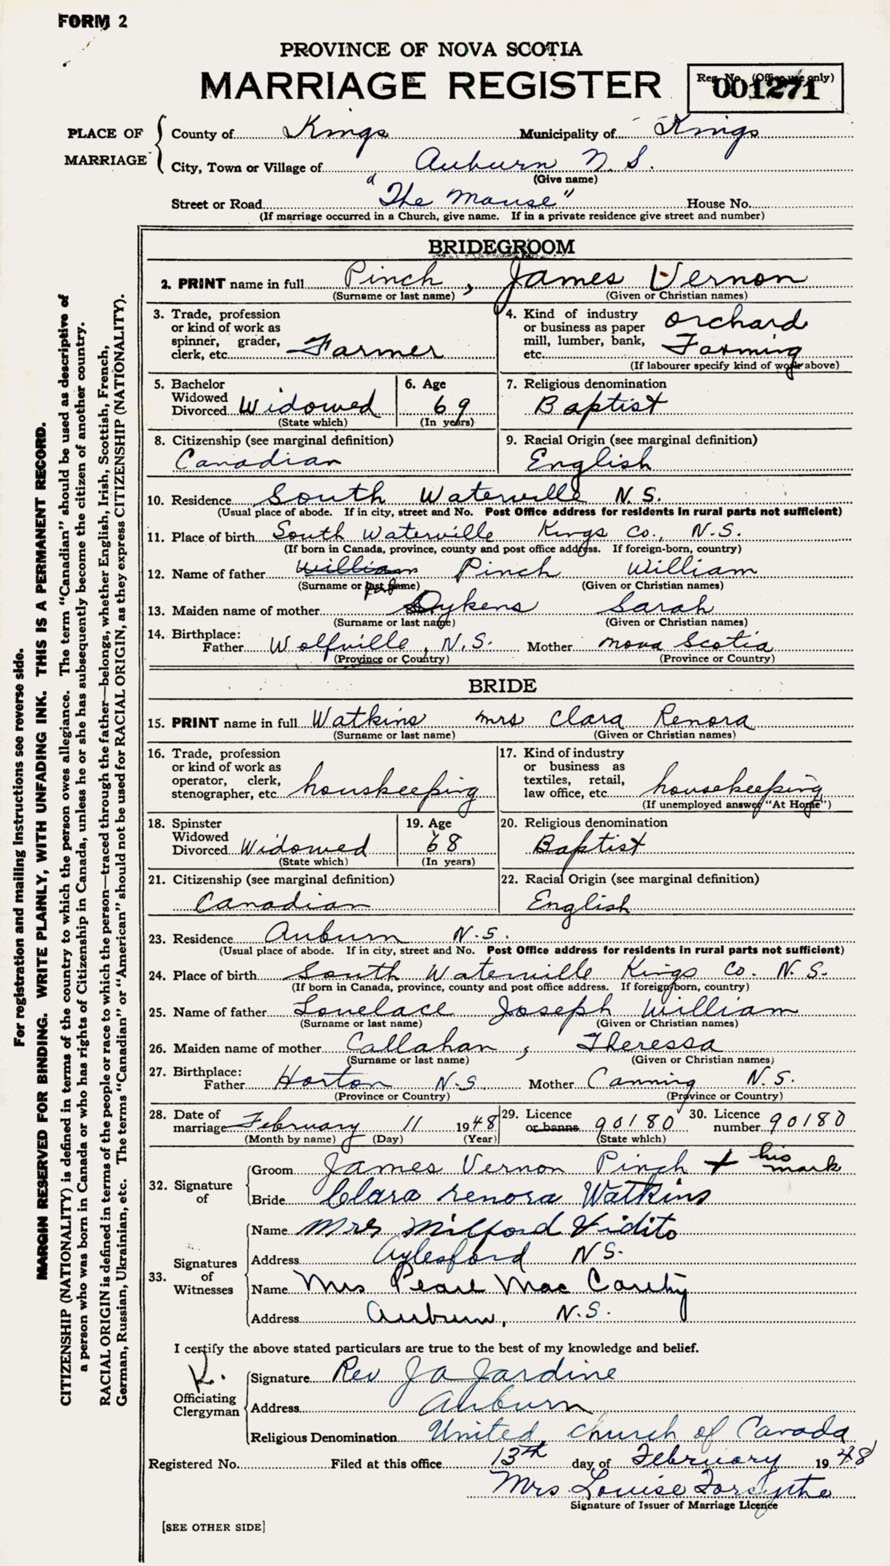 FORM 2
PROVINCE OF NOVA SCOTIA
MARRIAGE REGISTER
Reg. No. (Office use only)
001271
PLACE OF MARRIAGE
County of Kings Municipality of Kings
City, Town or Village of Auburn N.S.
(Give name)
Street or Road "The Manse" House No.
(If marriage occurred in a Church, give name. If in a private residence give street and number)
BRIDEGROOM
2. PRINT name in full Pinch, James Vernon
(Surname or last name) (Given or Christian names)
3. Trade, profession or kind of work as spinner, grader, clerk, etc. Farmer
4. Kind of industry or business as paper mill, lumber, bank, etc. Orchard Farming
(If labourer specify kind of work above)
5. Bachelor Widowed Divorced Widowed
(State which)
6. Age 69
(In years)
7. Religious denomination
Baptist
8. Citizenship (see marginal definition)
Canadian
9. Racial Origin (see marginal definition)
English
10. Residence South Waterville N.S.
(Usual place of abode. If in city, street and No. Post Office address for residents in rural parts not sufficient)
11. Place of birth South Waterville Kings Co., N.S.
(If born in Canada, province, county and post office address. If foreign-born, country)
12. Name of father William Pinch William
(Surname or last name) (Given or Christian names)
13. Maiden name of mother Dykens Sarah
(Surname or last name) (Given or Christian names)
14. Birthplace:
Father Wolfville, N.S. Mother Nova Scotia
(Province or Country) (Province or Country)
BRIDE
15. PRINT name in full Watkins Mrs Clara Renora
(Surname or last name) (Given or Christian names)
16. Trade, profession or kind of work as operator, clerk, stenographer, etc. houskeeping
17. Kind of industry or business as textiles, retail, law office, etc. housekeeping
(If unemployed answer "At Home")
18. Spinster Widowed Divorced Widowed
(State which)
19. Age 68
(In years)
20. Religious denomination
Baptist
21. Citizenship (see marginal definition)
Canadian
22. Racial Origin (see marginal definition)
English
23. Residence Auburn N.S.
(Usual place of abode. If in city, street and No. Post Office address for residents in rural parts not sufficient)
24. Place of birth South Waterville Kings Co. N.S.
(If born in Canada, province, county and post office address. If foreign-born, country)
25. Name of father Lovelace Joseph William
(Surname or last name) (Given or Christian names)
26. Maiden name of mother Callahan, Theressa
(Surname or last name) (Given or Christian names)
27. Birthplace:
Father Horton N.S Mother Canning N.S.
(Province or Country) (Province or Country)
28. Date of marriage February 11 1948 29. Licence or banns 90180 30. Licence number 90180
(Month by name) (Day) (Year) (State which)
32. Signature of
Groom James Vernon Pinch + his mark
Bride Clara renora Watkins
33. Signatures of Witnesses
Name Mrs Milford Vidito
Address Aylesford N.S.
Name Mrs Pearl Mac Carthy
Address Auburn, N.S.
I certify the above stated particulars are true to the best of my knowledge and belief.
Officiating Clergyman
Signature Rev J A Jardine
Address Auburn
Religious Denomination United Church of Canada
Registered No. Filed at this office 13th day of February 1948
Mrs Louise Forsythe
Signature of Issuer of Marriage Licence
[SEE OTHER SIDE]
For registration and mailing instructions see reverse side.
MARGIN RESERVED FOR BINDING. WRITE PLAINLY, WITH UNFADING INK. THIS IS A PERMANENT RECORD.
CITIZENSHIP (NATIONALITY) is defined in terms of the country to which the person owes allegiance. The term "Canadian" should be used as descriptive of
a person who was born in Canada or who has rights of Citizenship in Canada, unless he or she has subsequently become the citizen of another country.
RACIAL ORIGIN is defined in terms of the people or race to which the person—traced through the father—belongs, whether English, Irish, Scottish, French,
German, Russian, Ukrainian, etc. The terms "Canadian" or "American" should not be used for RACIAL ORIGIN, as they express CITIZENSHIP (NATIONALITY).